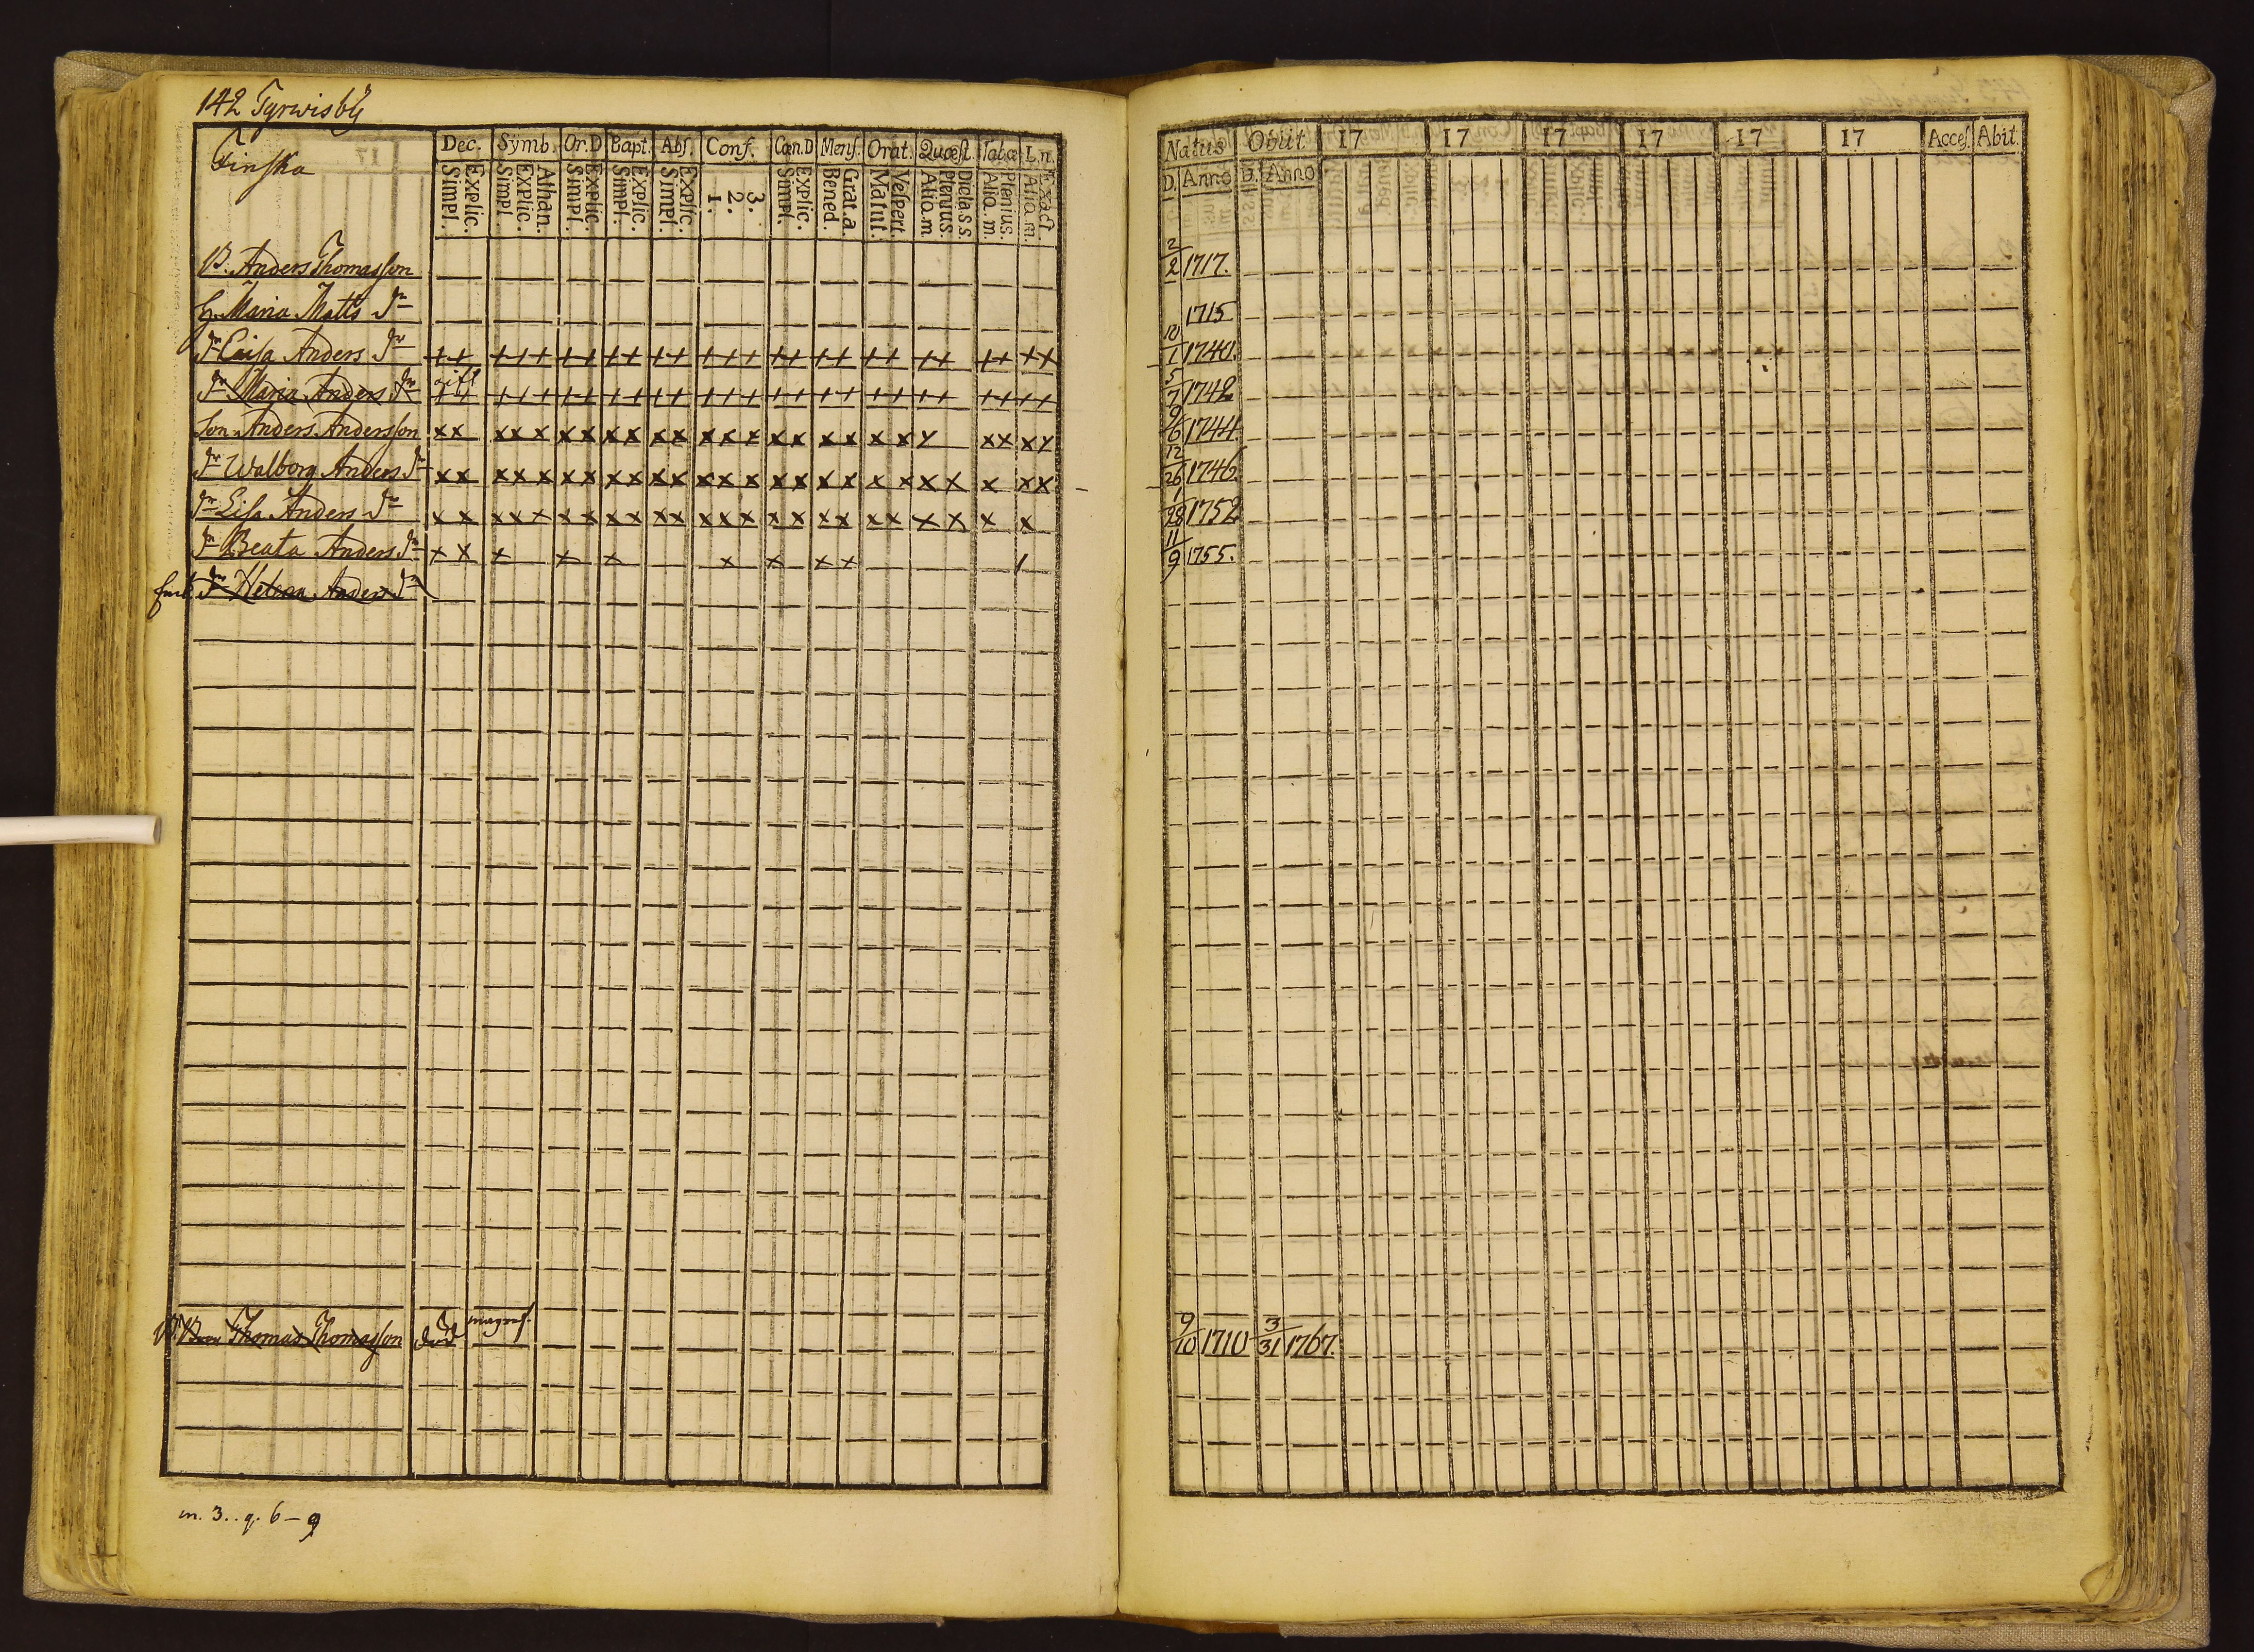 142 Tyrwisby
Finska
Dec. Symb. Or.D Bapt. Abs. Conf. Cœn.D Mens. Orat. Quæst. Tabæ L.n.
Explic. Simpl. Athan. Explic. Simpl. Explic. Simpl. Explic. Simpl. Explic. Simpl. 3. 2. 1. Explic. Simpl. Grat.a. Bened. Vespert. Matut. Dicta.s.s. Plenius. Alio.m. Plenius. Alio.m. Exact. Alia.m.
B. Anders Thomasson
H. Maria Matts dr
dr Caisa Anders dr
dr Maria Anders dr gift
Son Anders Andersson
dr Walborg Anders dr
dr Lisa Anders dr
dr Beata Anders dr
dr Helena Anders dr
Thomas Thomasson död
m. 3.. q. 6 - 9
Natus Obiit 17 17 17 17 17 17 Acces. Abit.
D. Anno D. Anno
2/2 1717.
1715
10/1 1740.
5/7 1742
9/6 1744
12/26 1746.
1/28 1752
11/9 1755.
9/10 1710 3/31 1767.